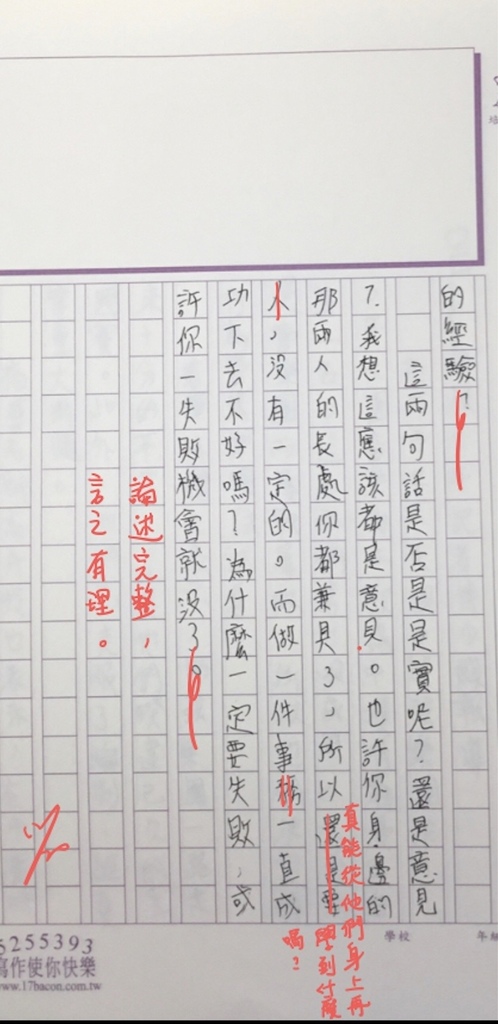 的經驗?
這兩句話是否是是實呢?還是意見
?我想這應該都是意見。也許你身邊的
那兩人的長處你都兼具了,所以還是要
人,沒有一定的。而做一件事情一直成
功下去不好嗎?為什麼一定要失敗,或
許你一失敗機會就沒了。
真能從他們身上再
學到什麼
嗎?
論述完整,
言之有理。
學校
年級
5255393
寫作使你快樂
www.17bacon.com.tw